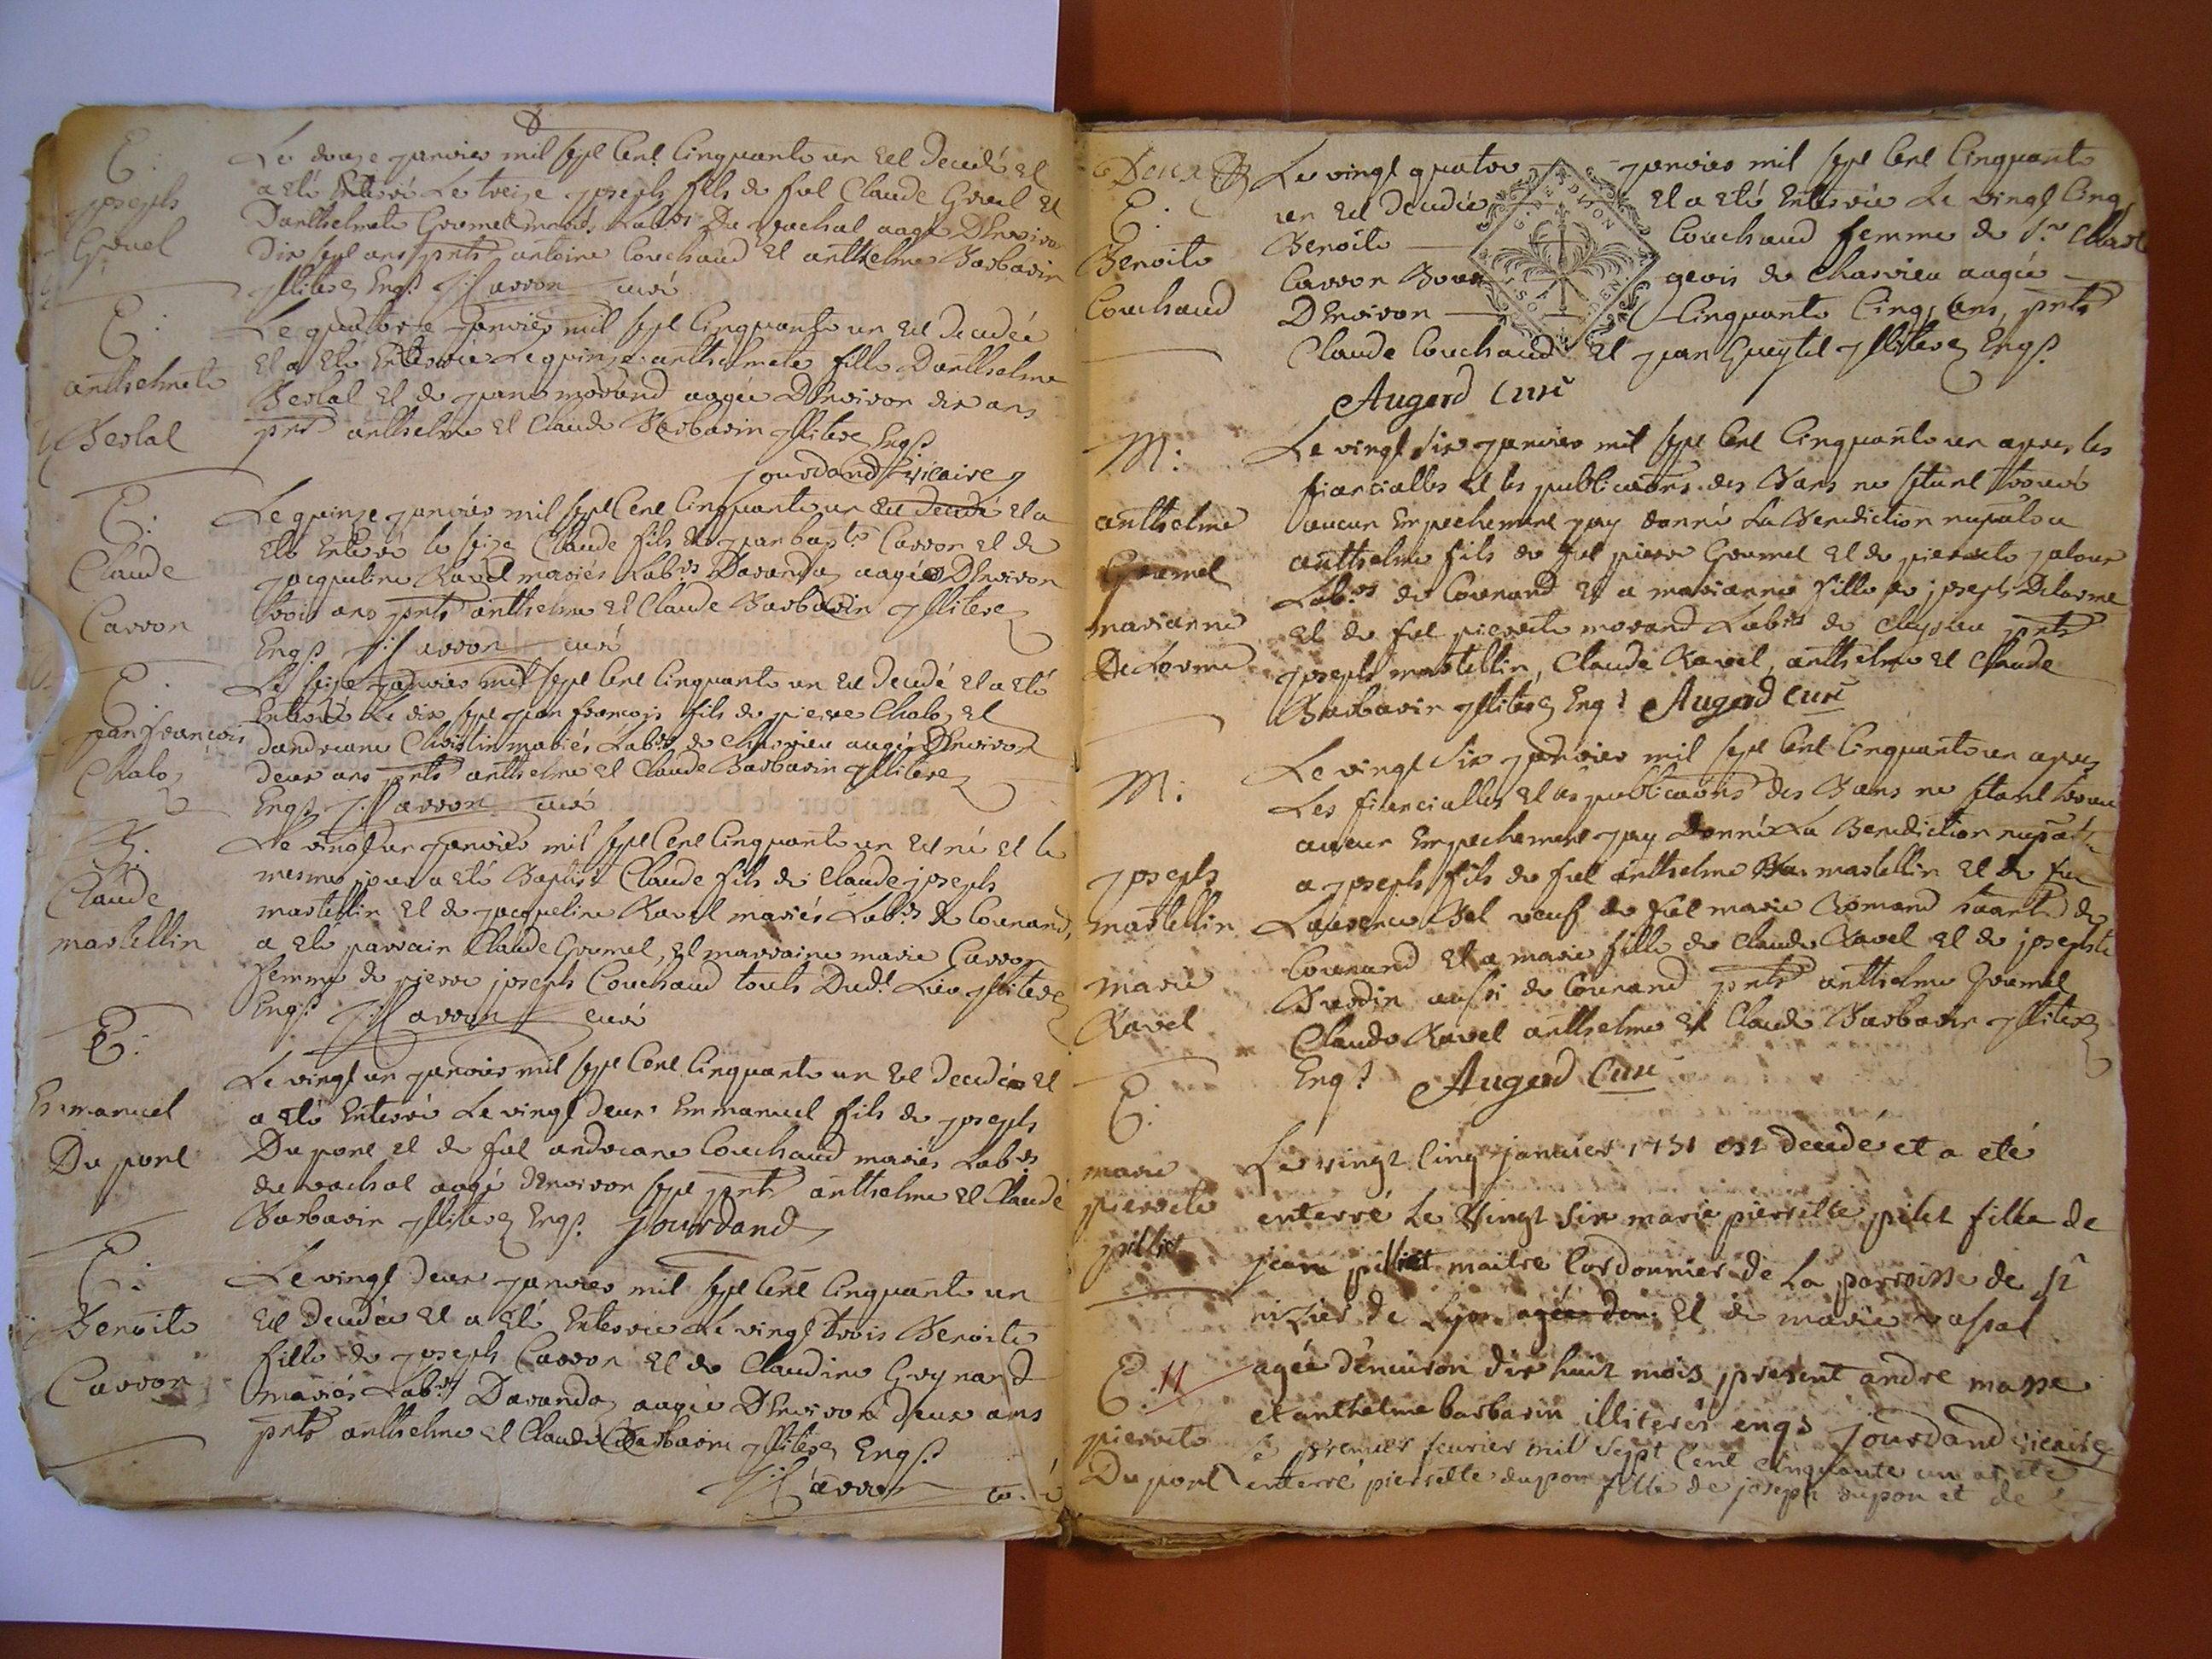 E:
joseph
Gruel
Le douze janvier mil sept Cent Cinquante un est decedé et
a eté Enterré Le treize joseph fils de feu Claude Gruel et
Danthelmete Grumel mariés Lab.rs aagé D'Environ
Dix sept ans pnts antoine Couchaud et anthelme Barbarin
jlliteres Enq.s Carron curé
E:
anthelmete
Berlal
Le quatorze janvier mil sept Cinquante un est decedée
Et a eté Enterrée Le quinze anthelmete fille Danthelme
Berlal et de jeane morand aagée D'Environ dix ans
pnts anthelme et Claude Barbarin jlliteres Enq.s
jourdand vicaire
E:
Claude
Carron
Le quinze janvier mil sept Cent Cinquante un est decedé et a
eté Enterré le seize Claude fils de jean bapt.e Carron et de
jacqueline Ravel mariés Lab.rs Daranda aagé D'Environ
trois ans pnts anthelme et Claude Barbarin jlliteres
Enq.s Carron curé
E:
jean françois
Chalo
Le seize janvier mil sept Cent Cinquante un est decedé et a eté
Enterré Le dix sept jean françois fils de pierre Chalo et
dandreane Christin mariés Lab.rs de charvieu aagé D'Environ
deux ans pnts anthelme et Claude Barbarin jlliteres
Enq.s Carron curé
B.
Claude
martellin
Le vingt un janvier mil sept Cent Cinquante un est né et le
mesme jour a eté Baptisé Claude fils de Claude joseph
martellin et de jacqueline Ravel mariés Lab.rs de Counand,
a eté parrain Claude Grumel, et marraine marie Carron
femme de pierre joseph Couchaud touts Dud.t Lieu jlliteres
Enq.s Carron curé
E:
Emmanuel
Dupont
Le vingt un janvier mil sept Cent Cinquante un est decedé et
a eté Enterré Le vingt deux Emmanuel fils de joseph
Dupont et de feue andreane Couchaud mariés Lab.rs
de vachat aagé d'Environ sept pnts anthelme et Claude
Barbarin jlliteres Enq.s jourdand
E:
Benoite
Carron
Le vingt deux janvier mil sept Cent Cinquante un
est decedée et a eté Enterrée Le vingt trois Benoite
fille de joseph Carron et de Claudine Guynard
mariés Lab.rs Daranda aagée D'Environ deux ans
pnts anthelme et Claude Barbarin jlliteres Enq.s
Carron curé
Deux
E.
Benoite
Couchaud
Le vingt quatre janvier mil sept Cent Cinquante
un est decedée et a eté Enterrée Le vingt Cinq
Benoite Couchaud femme de s.r
Carron Bourgeois de Charvieu aagée
D'Environ Cinquante Cinq ans, pnts
Claude Couchaud et jean jlliteres Enq.s
Augerd curé
M:
anthelme
Grumel
marianne
DeLorme
Le vingt six janvier mil sept Cent Cinquante un apres les
fiancialles et les publications des Bans ne s'etant trouvé
aucun Empechement jay donné La Benediction nuptiale a
anthelme fils de feu pierre Grumel et de pierrete
Lab.rs de Counand et a marianne fille de joseph Delorme
et de feue pierrete morand Lab.rs de pnts
joseph martellin, Claude Ravel, anthelme et Claude
Barbarin jlliteres Enq.s Augerd curé
M:
joseph
martellin
marie
Ravel
Le vingt six janvier mil sept Cent Cinquante un apres
Les fiancialles et les publications des Bans ne s'etant trouvé
aucun Empechement jay donné La Benediction nuptiale
a joseph fils de feu anthelme martellin et de feue
Laurence Bal veuf de feue marie Romand habitant de
Counand et a marie fille de Claude Ravel et de josephte
Burdin aussi de Counand pnts anthelme Grumel
Claude Ravel anthelme et Claude Barbarin jlliteres
Enq.s Augerd Curé
E:
marie
pierrete
pilliet
Le vingt Cinq janvier 1751 est decedé et a eté
enterré Le Vingt six marie pierrette pilet fille de
jean pilliet maitre Cordonnier de La parroisse de s.t
nizier de Lyon agée den et de marie vassal
agée d'environ dix huit mois, present andre masse
et anthelme barbarin illiterés enqs jourdand vicaire
E. 11
pierrete
Dupont
Le premier feurier mil sept Cent cinquante un a eté
enterré pierrette dupon fille de joseph dupon et de